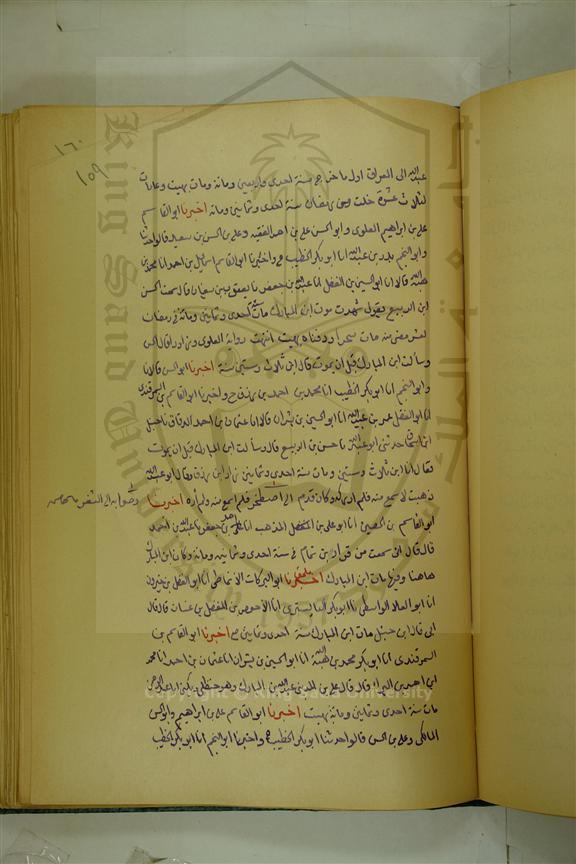 ١٦٠
١٥٩
عبد الله الى العراق اول ما خرج سنة احدى واربعين ومائة ومات بهيت وعانات
لثلاث عشرة خلت من رمضان سنة احدى وثمانين ومائة اخبرنا ابو القاسم
علي بن ابراهيم العلوي وابو الحسن علي بن احمد الفقيه وعلي بن الحسن بن سعيد قالوا حدثنا
وابو النجم بدر بن عبد الله انا ابو بكر الخطيب ح واخبرنا ابو القاسم اسماعيل بن احمد انا محمد بن
هبة الله قالا انا ابو الحسين بن الفضل انا عبد الله بن جعفر نا يعقوب بن سفيان قال سمعت الحسن
ابن الربيع يقول شهدت موت ابن المبارك مات سنة احدى وثمانين ومائة في رمضان
لعشر مضين منه مات سحرا ودفناه بهيت انتهت رواية العلوي وزاد قال الحسن
وسألت ابن المبارك قبل ان يموت قال انا ابن ثلاث وستين سنة اخبرنا ابو الحسن قالا نا
وابو النجم انا ابو بكر الخطيب انا محمد بن احمد بن رزق ح واخبرنا ابو القاسم بن السمرقندي
انا ابو الفضل عمر بن عبيد الله انا ابو الحسين بن بشران قالا انا عثمان بن احمد الدقاق نا حنبل
ابن اسحاق حدثني ابو عبد الله نا حسن بن الربيع قال وسألت ابن المبارك قبل ان يموت
فقال انا ابن ثلاث وستين ومات سنة احدى وثمانين زاد ابن رزق قال ابو عبد الله
ذهبت لاسمع منه فلم ادركه وكان قدم الى فلم اسمع منه ولم اره اخبرنا
ابو القاسم بن الحصين انا ابو علي بن المذهب انا احمد بن جعفر نا عبد الله بن احمد
قال قال ابي سمعت من في سنة احدى وثمانين ومائة وكان ابن المبارك
هاهنا وفيها مات ابن المبارك اخبرنا ابو البركات الانماطي انا ابو الفضل بن خيرون
انا ابو العلا الواسطي نا ابو بكر البابسيري انا الاحوص بن المفضل بن غسان قال قال
ابي قال ابن حنبل مات ابن المبارك سنة احدى وثمانين ح اخبرنا ابو القاسم بن
السمرقندي انا ابو بكر محمد بن هبة الله انا ابو الحسين بن بشران انا عثمان بن احمد انا محمد
ابن احمد بن البراء قال قال علي بن المديني عبد الله بن المبارك وهو حنظلي يكنى ابا عبد الرحمن
مات سنة احدى وثمانين ومائة بهيت اخبرنا ابو القاسم علي بن ابراهيم وابو الحسن
المالكي وعلي بن الحسن قالوا حدثنا ابو بكر الخطيب ح واخبرنا ابو النجم انا ابو بكر الخطيب
Copyright © King Saud University
King Saud University
1957